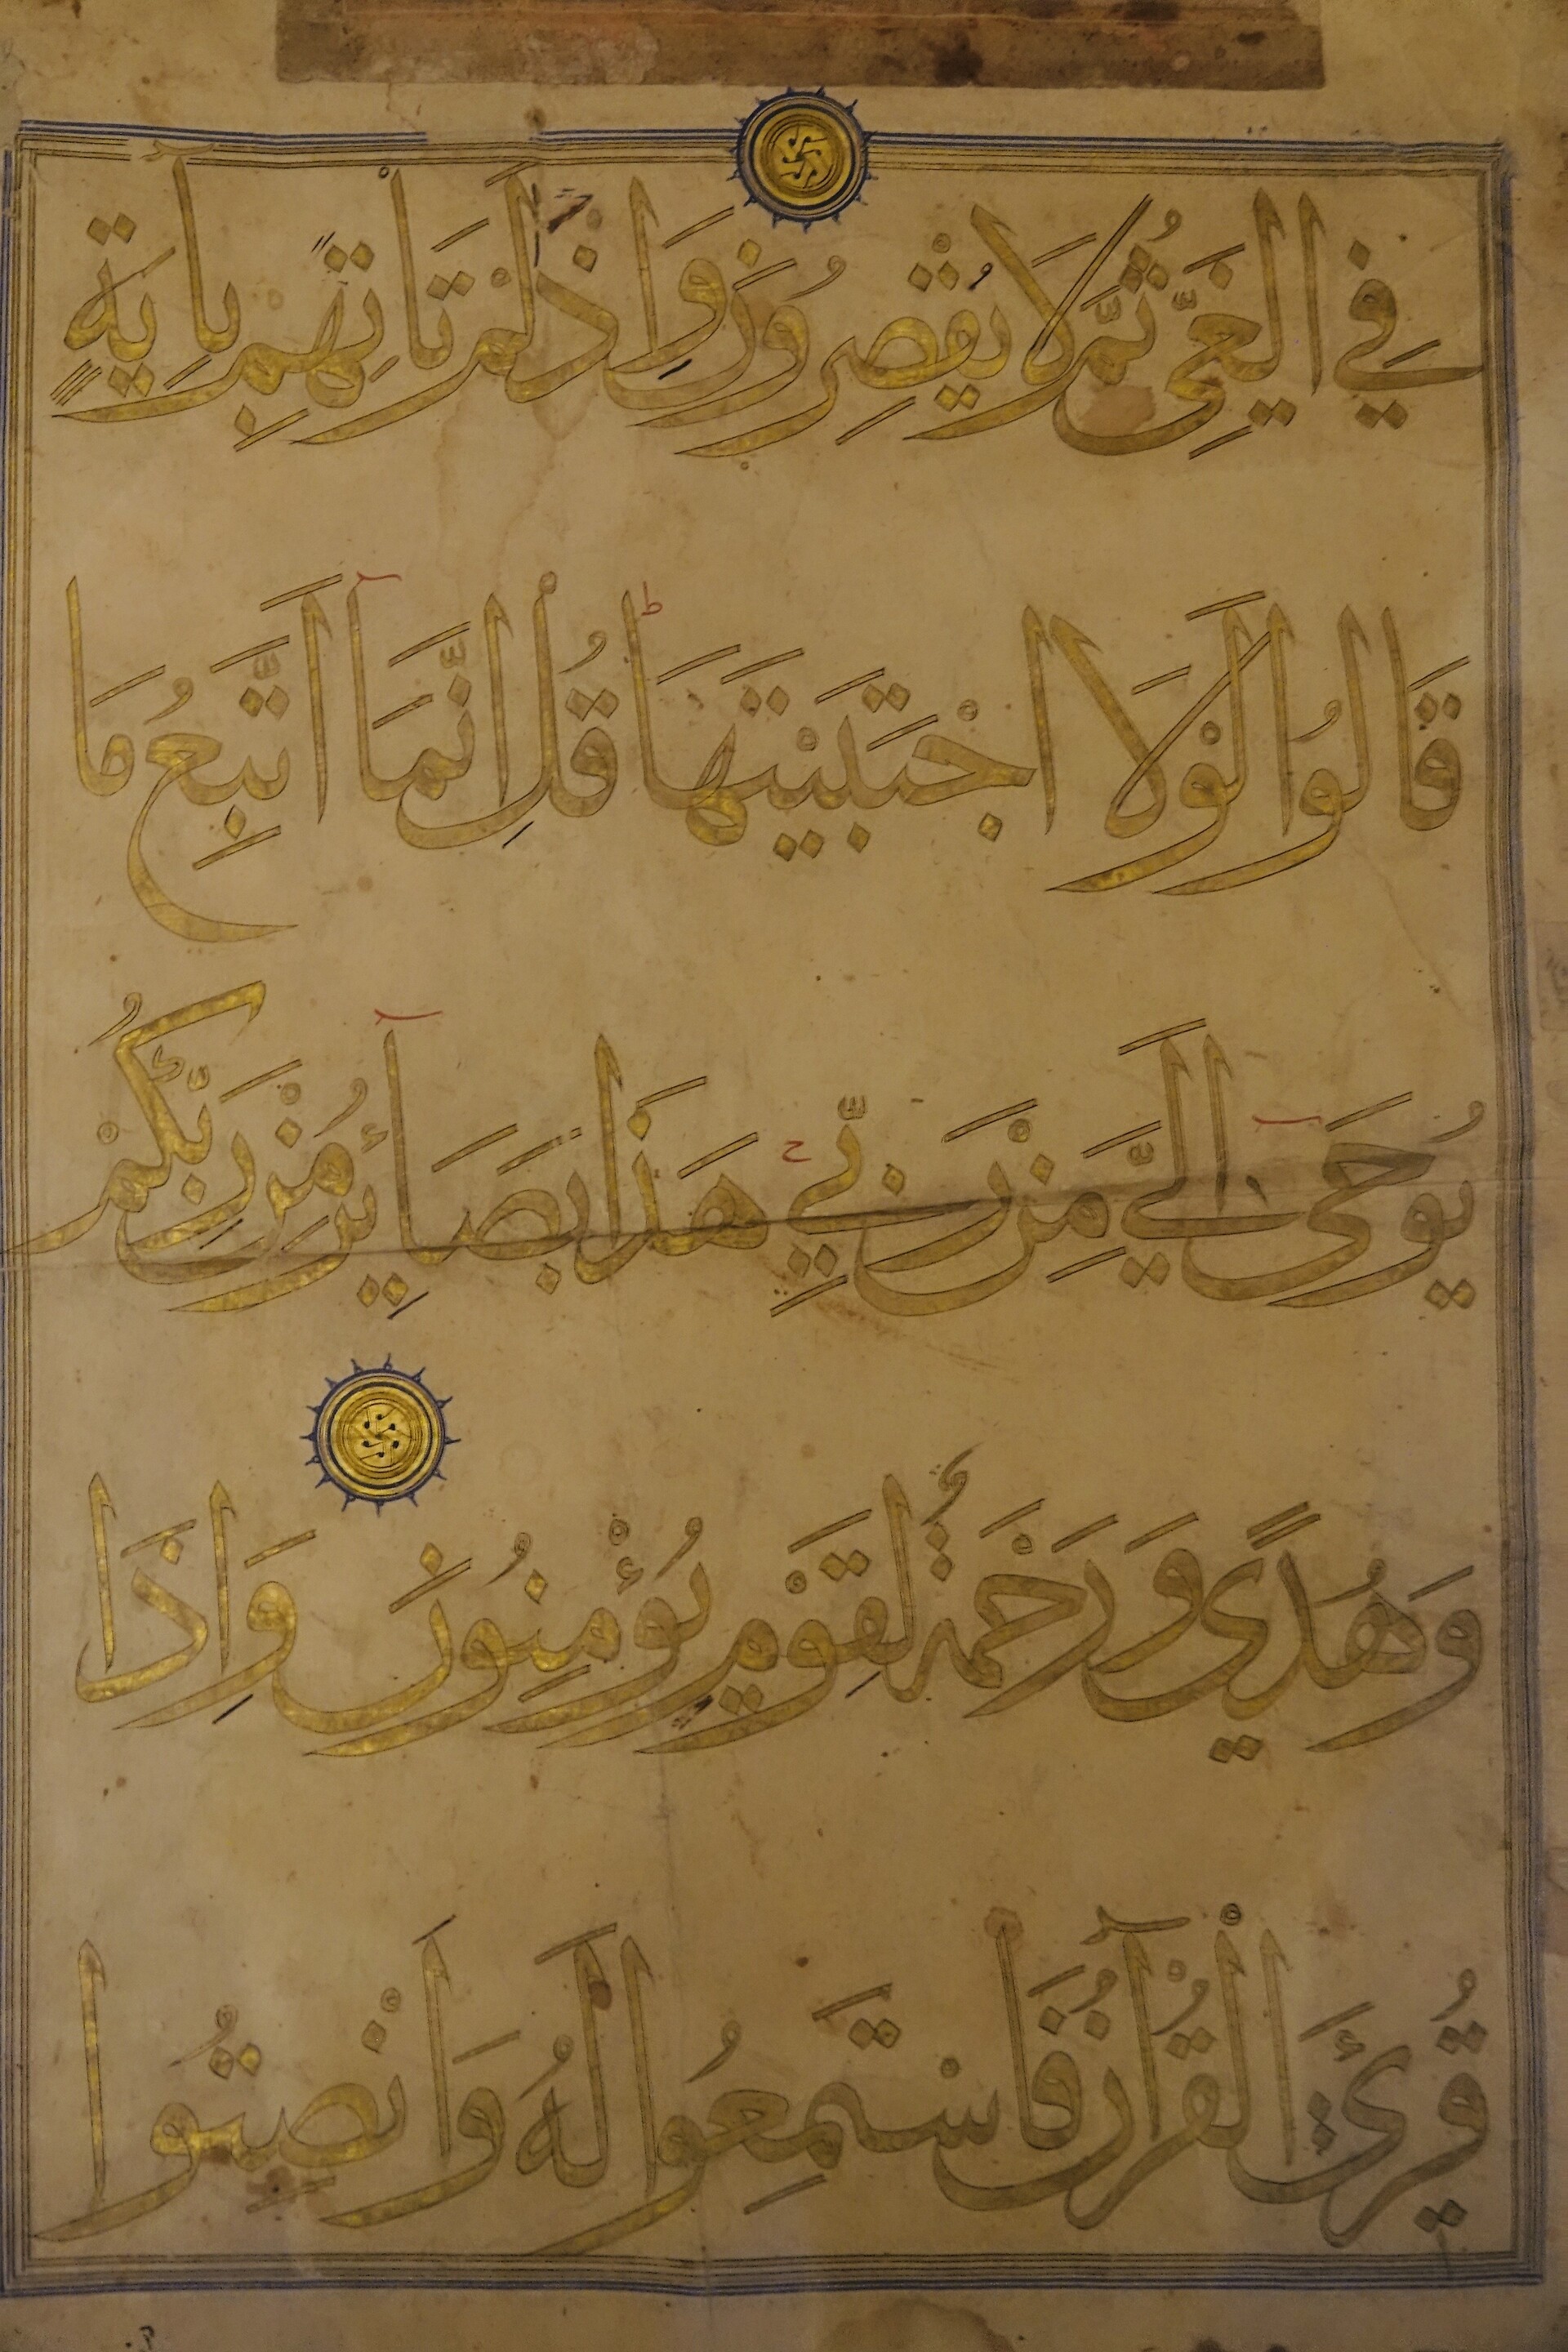 فِي الْغَيِّ ثُمَّ لَا يُقْصِرُونَ وَاِذَا لَمْ تَأْتِهِمْ بِاٰيَةٍ
قَالُوا لَوْلَا اجْتَبَيْتَهَا ط قُلْ اِنَّمَآ اَتَّبِعُ مَا
يُوحَىٓ اِلَيَّ مِنْ رَبِّي ج هَذَا بَصَآئِرُ مِنْ رَبِّكُمْ
وَهُدًي وَرَحْمَةٌ لِقَوْمٍ يُؤْمِنُونَ وَاِذَا
قُرِئَ الْقُرْآنُ فَاسْتَمِعُوا لَهُ وَاَنْصِتُوا